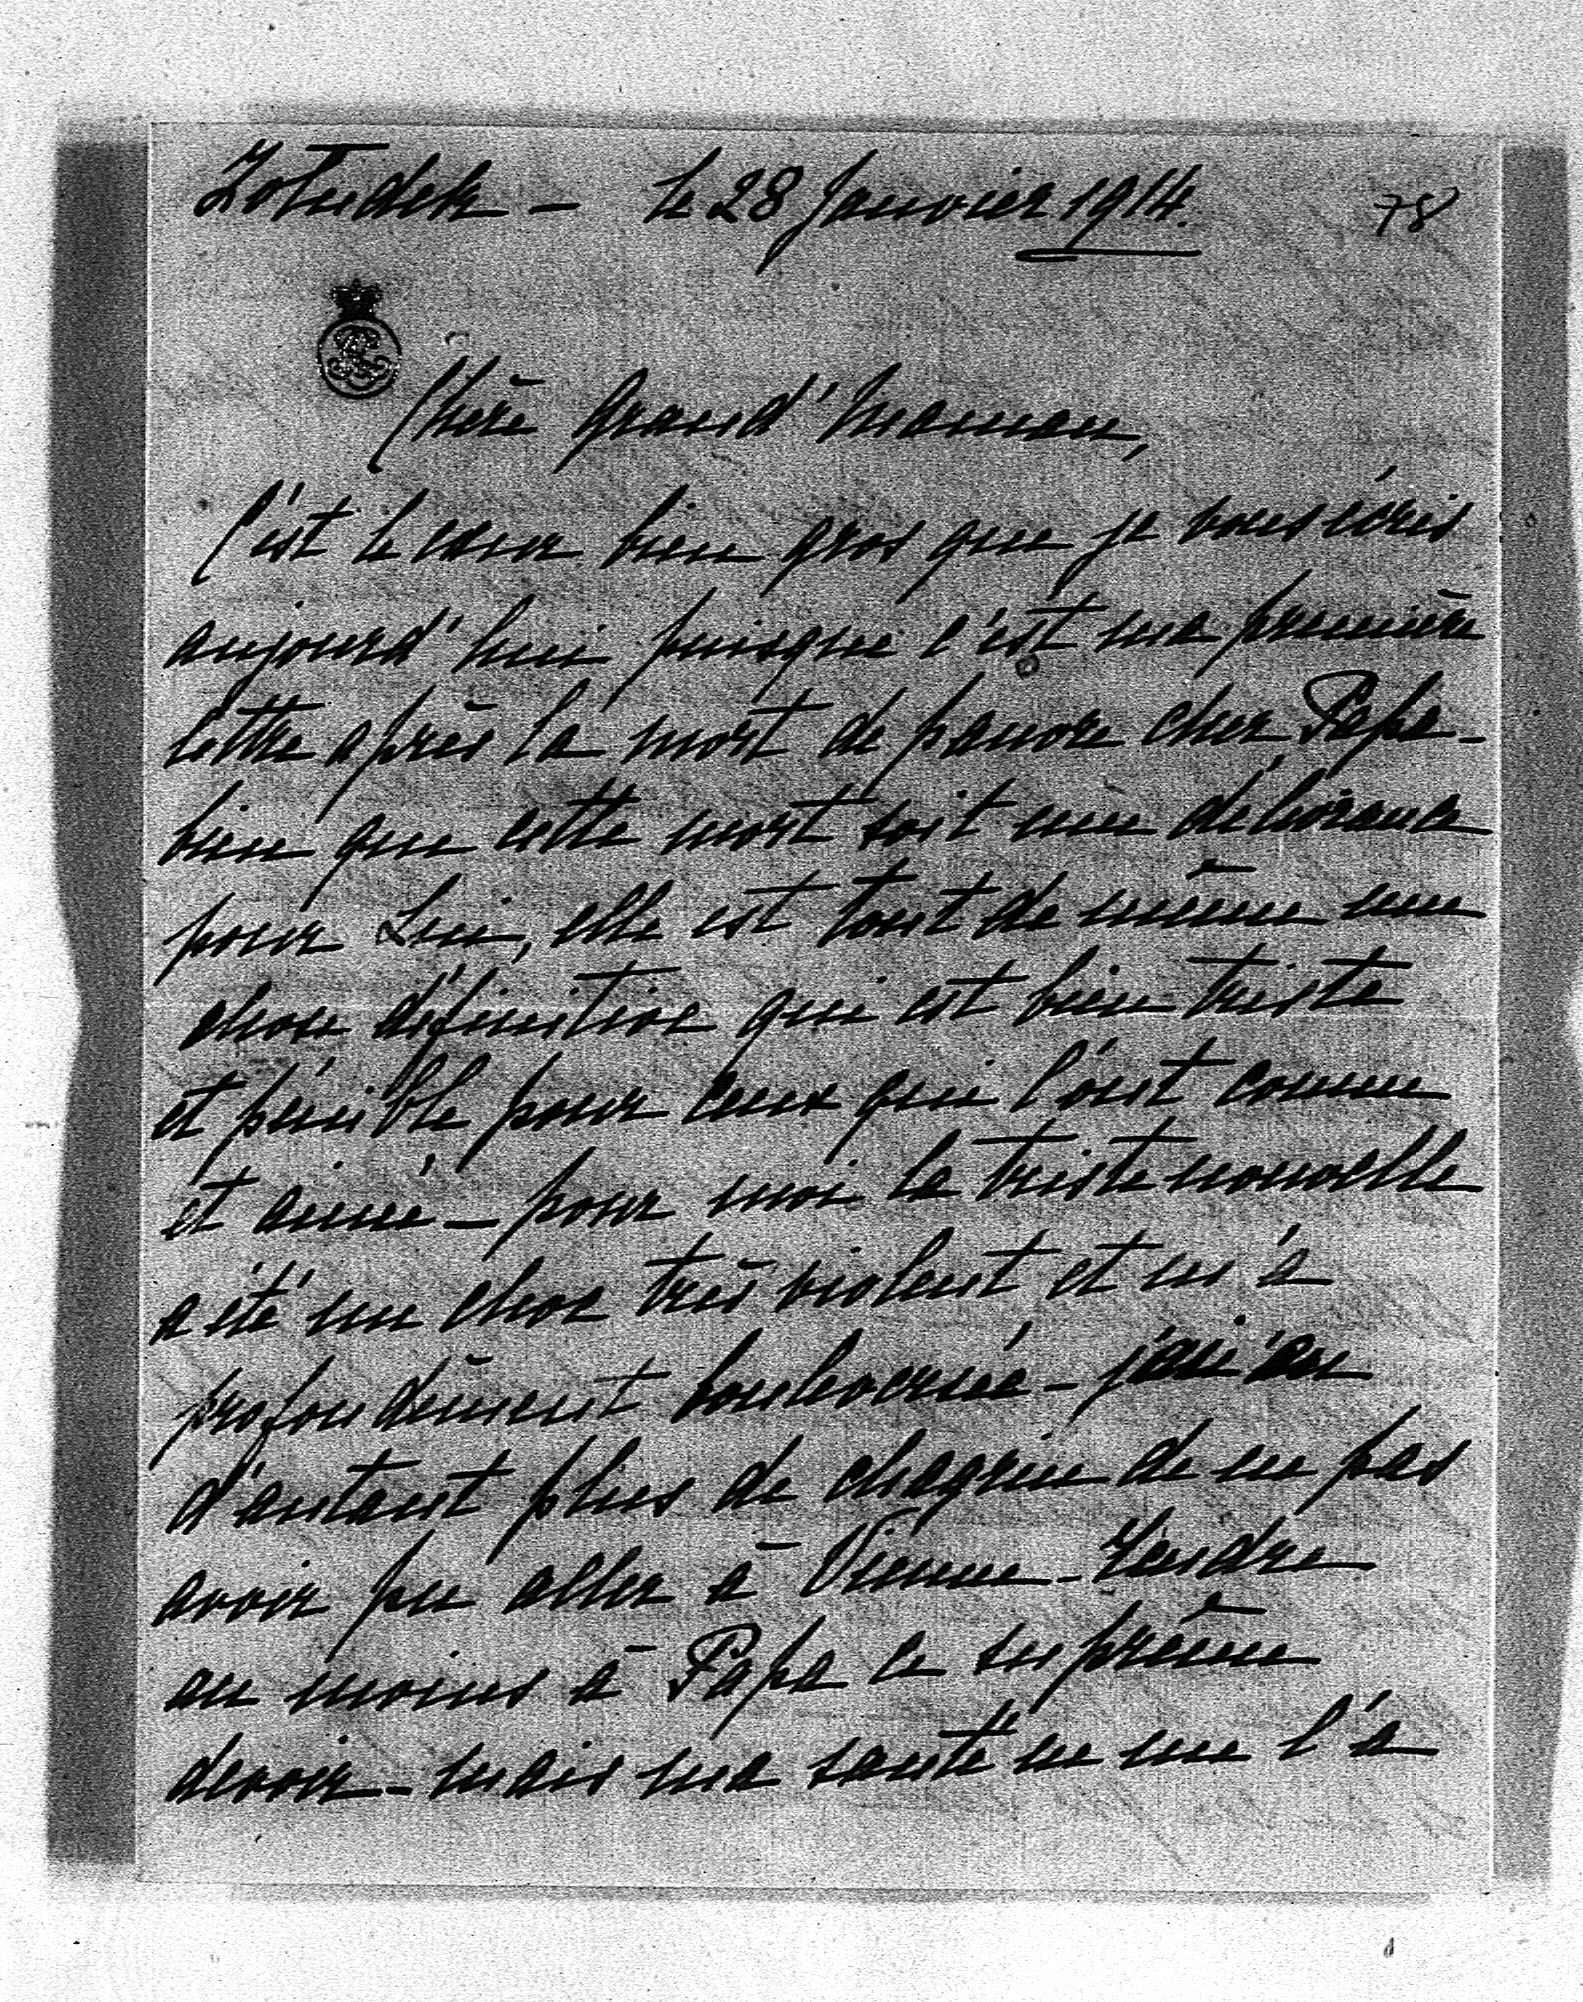 Zołudek – le 28 Janvier 1914.
78
Chère Grand'Maman,
C'est le cœur bien gros que je vous écris
aujourd'hui puisque c'est ma première
lettre après la mort de pauvre cher Papa –
bien que cette mort soit une délivrance
pour Lui, elle est tout de même une
chose définitive qui est bien triste
et pénible pour ceux qui l'ont connu
et aimé – pour moi la triste nouvelle
a été un choc très violent et m'a
profondément bouleversée – j'ai eu
d'autant plus de chagrin de ne pas
avoir pu aller à Vienne – rendre
au moins à Papa le suprême
devoir – mais ma santé ne me l'a